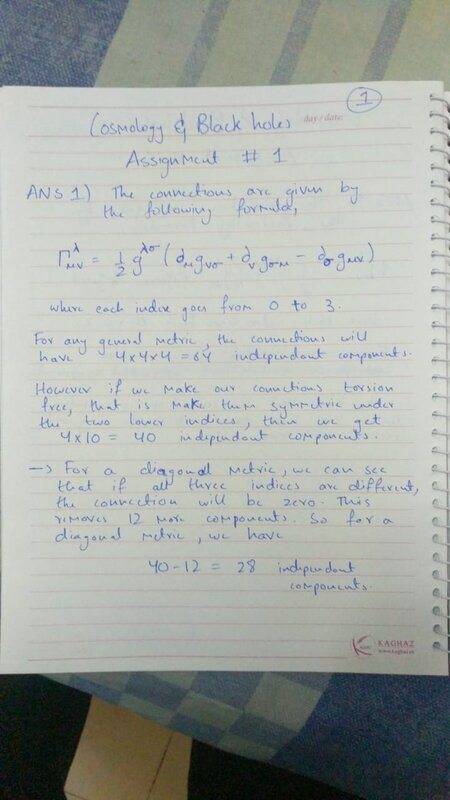 1
Cosmology & Black holes
day / date:
Assignment # 1
ANS 1) The connections are given by
the following formula,
Γ^λ_μν = 1/2 g^λσ ( ∂_μ g_νσ + ∂_ν g_σμ − ∂_σ g_μν )
where each index goes from 0 to 3.
For any general metric, the connections will
have 4x4x4 = 64 independent components.
However if we make our connections torsion
free, that is make them symmetric under
the two lower indices, then we get
4x10 = 40 independent components.
→ For a diagonal metric, we can see
that if all three indices are different,
the connection will be zero. This
removes 12 more components. So for a
diagonal metric, we have
40-12 = 28 independent
components.
KAGHAZ